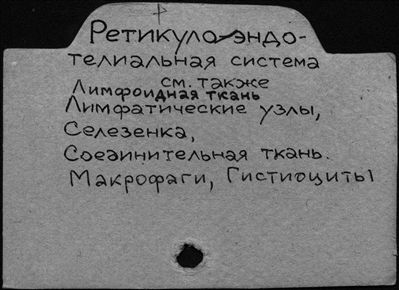 Р
Ретикуло-эндо-
телиальная система
см. также
Лимфоидная ткань
Лимфатические узлы,
Селезенка,
Соединительная ткань.
Макрофаги, Гистиоциты